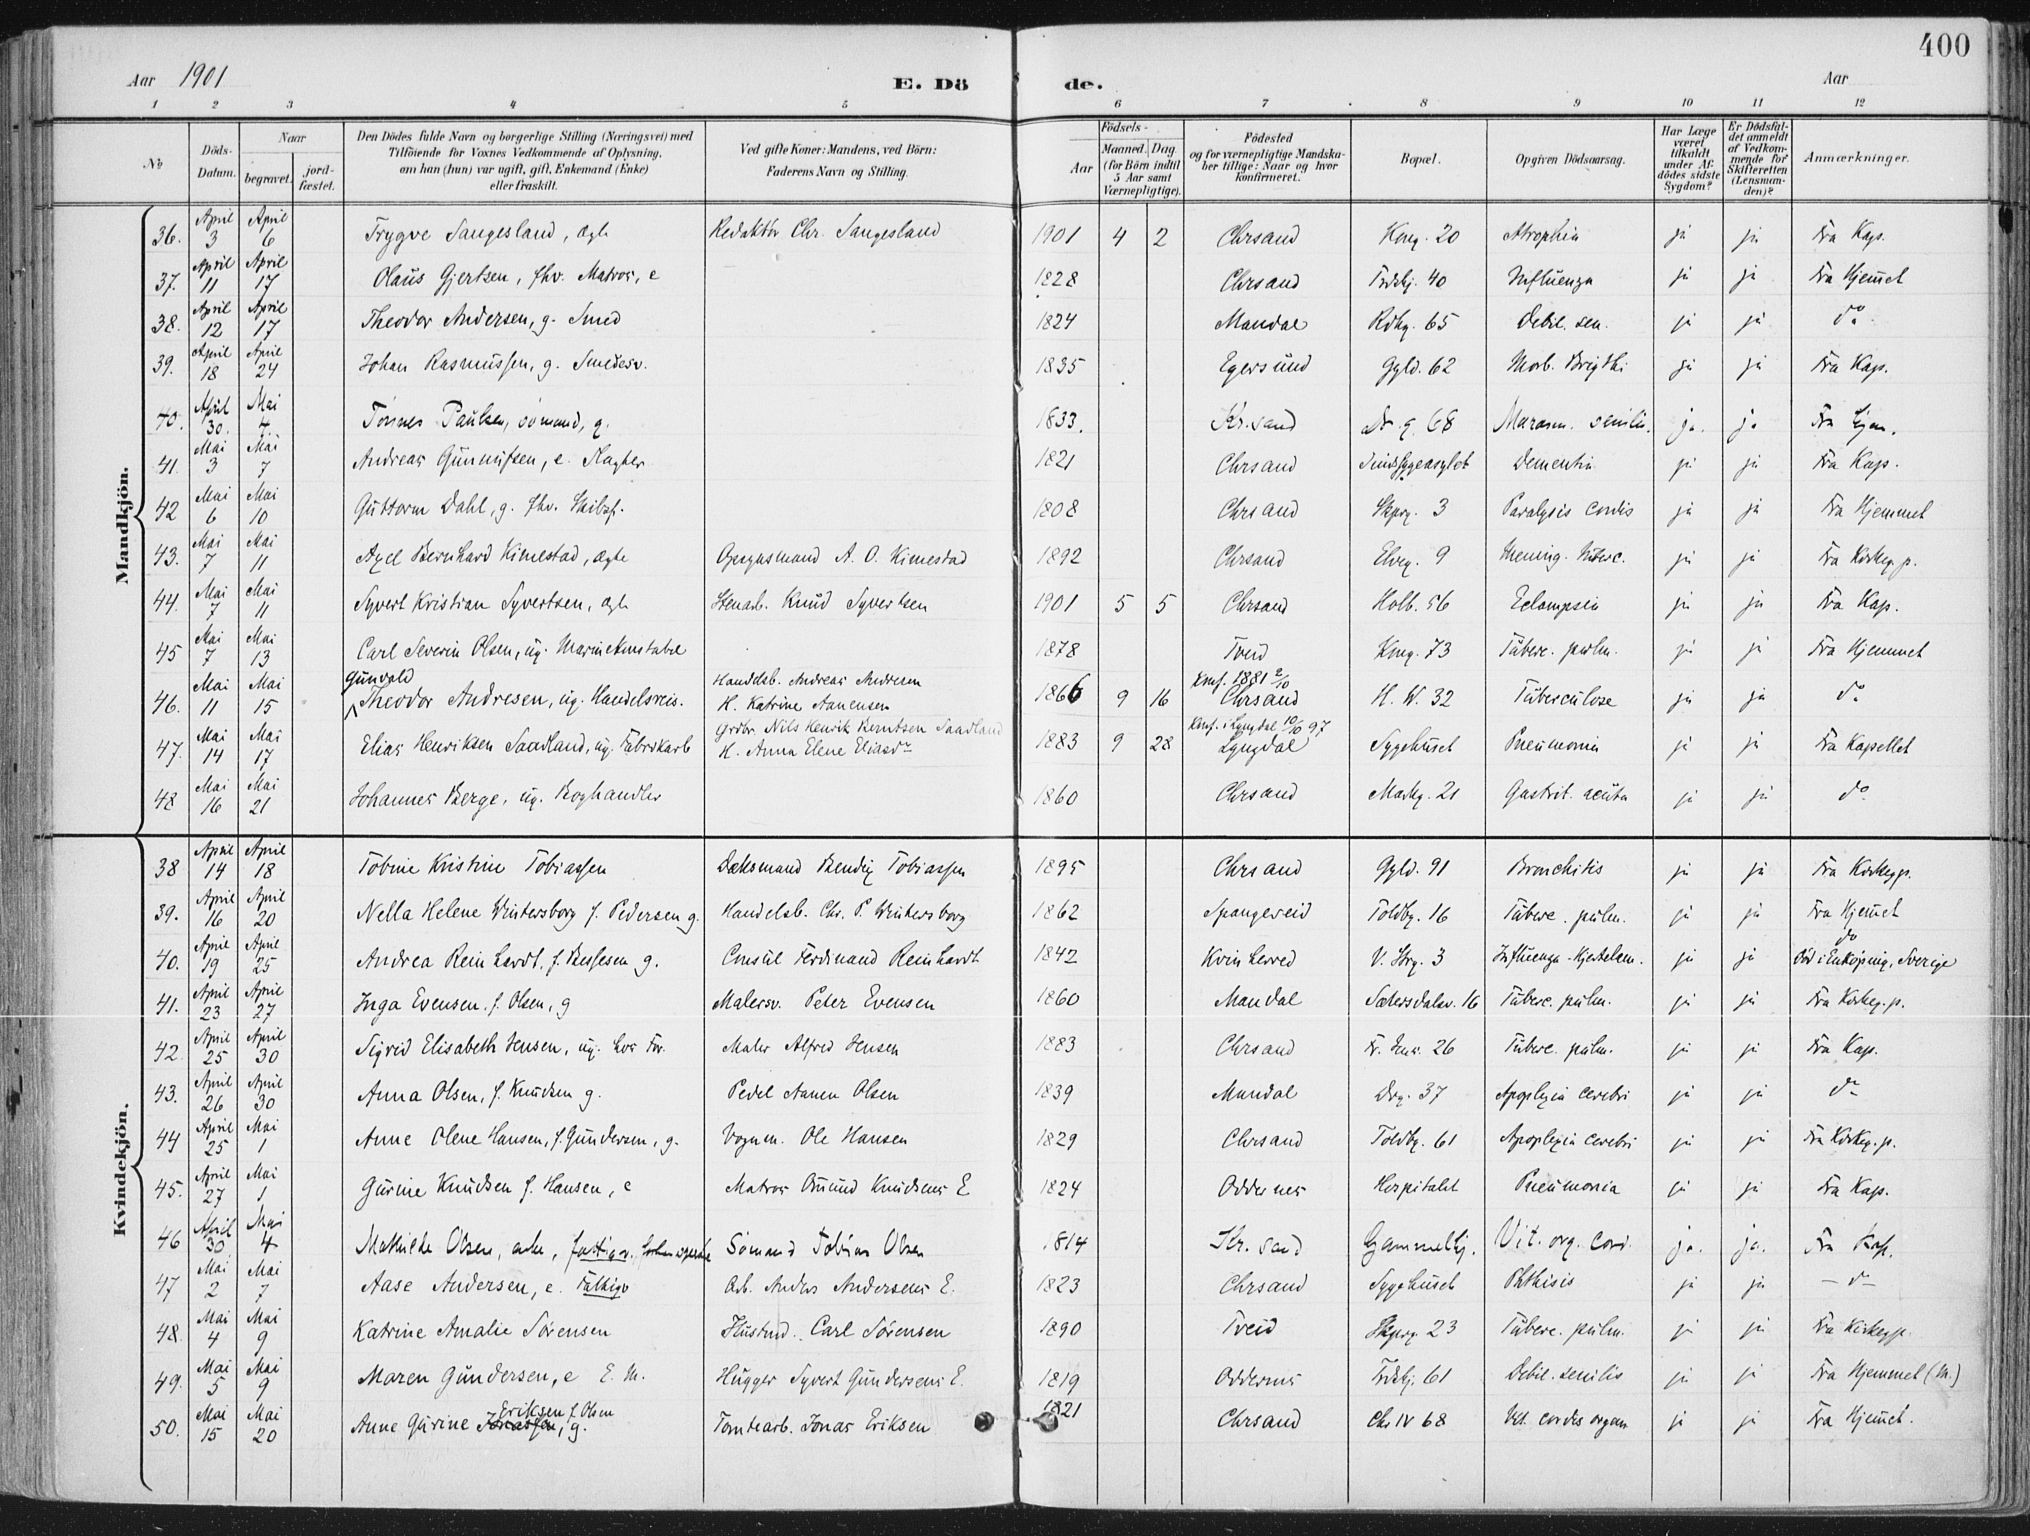 400
Aar 1901
E. Dö de.
Aar
1 2 3 4 5 6 7 8 9 10 11 12
No
Döds-Datum.
Naar
begravet.
jordfæstet.
Den Dödes fulde Navn og borgerlige Stilling (Næringsvei) med
Tilföiende for Voxnes Vedkommende af Oplysning,
om han (hun) var ugift, gift, Enkemand (Enke)
eller fraskilt.
Ved gifte Koner: Mandens, ved Börn:
Faderens Navn og Stilling.
Födsels-
Aar
Maaned. Dag
(for Börn indtil
5 Aar samt
Værnepligtige).
Födested
og for værnepligtige Mandskaber tillige: Naar og hvor
konfirmeret.
Bopæl.
Opgiven Dödsaarsag.
Har Læge
været
tilkaldt
under Afdödes sidste
Sygdom?
Er Dödsfaldet anmeldt
af Vedkommende for
Skifteretten
(Lensmanden)?
Anmærkninger.
Mandkjön.
36. April 3 April 6 Trygve Sangesland, ægte Redaktör Chr. Sangesland 1901 4 2 Chrsand Kong. 20 Atrophia ja ja Fra Kap.
37. April 11 April 17 Olaus Gjertsen, fhv. Matros, e 1828 Chrsand 40 Influenza ja ja Fra Hjemmet
38. April 12 April 17 Theodor Andersen, g. Smed 1824 Mandal Rdhg. 65 Debil. sen. ja ja do
39. April 18 April 24 Johan Rasmussen, g. Smedesv. 1835 Egersund Gyld. 62 Morb. Brigthi ja ja Fra Kap.
40. April 30. Mai 4. Tönnes Paulsen, sömand, g. 1833. Kr.sand Dr. g. 68 Marasm. senilis. ja. ja Fra Hjem.
41. Mai 3 Mai 7 Andreas Gunnufsen, e. 1821 Chrsand Sindssygeasylet Dementia ja ja Fra Kap.
42 Mai 6 Mai 10 Guttorm Dahl, g. fhv. Skibsf. 1808 Chrsand Skprg. 3 Paralysis cordis ja ja Fra Hjemmet
43. Mai 7 Mai 11 Axel Bernhard Kimestad, ægte Opsynsmand A. O. Kimestad 1892 Chrsand Elveg. 9 Mening. tuberc. ja ja Fra Kirkeg.p.
44. Mai 7 Mai 11 Syvert Kristian Syvertsen, ægte Stenarb. Knud Syvertsen 1901 5 5 Chrsand Holb. 56 Eclampsia ja ja Fra Kap.
45 Mai 7 Mai 13 Carl Severin Olsen, ug. Marinekonstabel 1878 Tveid Kong. 73 Tuberc. pulm. ja ja Fra Hjemmet
46. Mai 11 Mai 15 Gunvald Theodor Andresen, ug. Handelsreis. Handelsb. Andreas Andresen 1866 9 16 Konf. 1881 2/10 Chrsand H. W. 32 Tuberculose ja ja do
H. Katrine Aanensen
47. Mai 14 Mai 17 Elias Henriksen Saadland, ug. Fabrikarb Grdbr. Nils Henrik Berntsen Saadland 1883 9 28 Konf. i Lyngdal 10/10 97 Lyngdal Sygehuset Pneumonia ja ja Fra Kapellet
H. Anna Elene Eliasdr
48 Mai 16 Mai 21 Johannes Berge, ug. Boghandler 1860 Chrsand Markg. 21 Gastrit. acuta ja ja do
Kvindekjön.
38 April 14 April 18 Tobine Kristine Tobiassen Dæksmand Bendix Tobiassen 1895 Chrsand Gyld. 91 Bronchitis ja ja Fra Kirkeg.p.
39. April 16 April 20 Nella Helene Wintersborg f. Pedersen g. Handelsb. Chr. P. Wintersborg 1862 Spangereid Toldbg. 16 Tuberc. pulm. ja ja Fra Hjemmet
40. April 19 April 25 Andrea Reinhardt, f. g. Consul Ferdinand Reinhardt 1842 Kvinherred V. Strg. 3 Influenza - ja ja do Död i Enköping, Sverige
41. April 23 April 27 Inga Evensen, f. Olsen, g Malersv. Peter Evensen 1860 Mandal Sætersdalsv. 16 Tuberc. pulm. ja ja Fra Kirkeg.p.
42. April 25 April 30 Sigrid Elisabeth Jensen, ug. hos For. Maler Alfred Jensen 1883 Chrsand Fr. Jens. 26 Tuberc. pulm. ja ja Fra Kap.
43. April 26 April 30 Anna Olsen, f. Knudsen g. Pedel Aanen Olsen 1839 Mandal Drg. 37 Apoplexia cerebri ja ja do
44 April 25 Mai 1 Anne Olene Hansen, f. Gundersen, g. Vognm. Ole Hansen 1829 Chrsand Toldbg. 61 Apoplexia cerebri ja ja Fra Kirkeg.p.
45. April 27 Mai 1 Gurine Knudsen f. Hansen, e Matros Omund Knudsens E 1824 Oddernes Hospitalet Pneumonia ja ja Fra Kap.
46 April 30 Mai 4 Mathilde Olsen, enke, Sömand Tobias Olsen 1814 Kr. sand Gammelhj. Vit. org. cord. ja. ja. Fra Kap.
47 Mai 2 Mai 7 Aase Andersen, e. Fattigv Arb. Anders Andersens E. 1823 Chrsand Sygehuset Phthisis ja ja – do –
48. Mai 4 Mai 9 Katrine Amalie Sörensen Hustmd. Carl Sörensen 1890 Tveid Skprg. 23 Tuberc. pulm. ja ja Fra Kirkeg.p.
49. Mai 5 Mai 9 Maren Gundersen, e E. M. Hugger Syvert Gundersens E. 1819 Oddernes 61 Debil. senilis ja ja Fra Hjemmet (M.)
50. Mai 15 Mai 20 Anne Gurine Jonassen, Eriksen f. Olsen g. Tomtearb. Jonas Eriksen 1821 Chrsand Chr IV 68 Vit. cordis organ ja ja Fra Hjemmet.